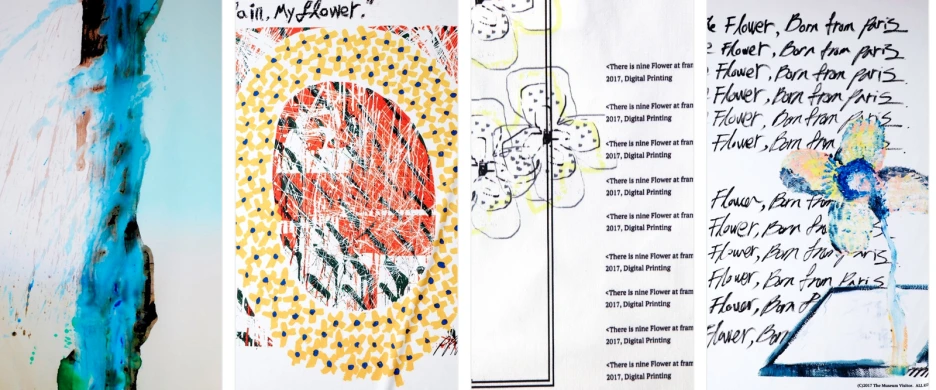 ain, My flower."
<There is nine Flower at fran
2017, Digital Printing
<There is nine Flower at fran
2017, Digital Printing
<There is nine Flower at fran
2017, Digital Printing
<There is nine Flower at fran
2017, Digital Printing
<There is nine Flower at fran
2017, Digital Printing
<There is nine Flower at fran
2017, Digital Printing
<There is nine Flower at fran
2017, Digital Printing
<There is nine Flower at fran
2017, Digital Printing
<There is nine Flower at fran
2017, Digital Printing
e Flower, Born from paris
e Flower, Born from paris
Flower, Born from paris
Flower, Born from paris
Flower, Born from paris
Flower, Born from
Flower, Born from
Flower, Born from
Flower, Born from Paris
Flower, Born from Paris
Flower, Born
Flower, Born
(C)2017 The Museum Visitor.